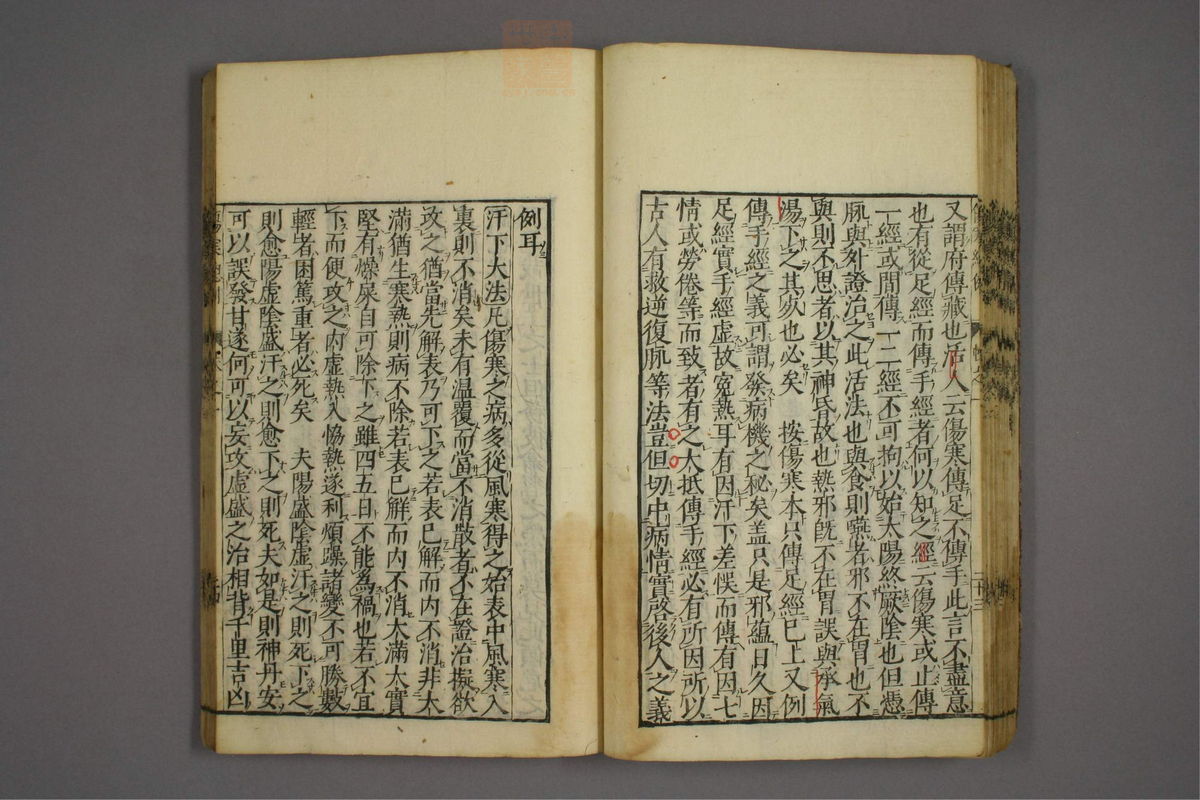 又謂府傳藏也活人云傷寒傳足不傳手此言不盡意
也有從足經而傳手經者何以知之經云傷寒或止傳
一經或間傳一二經不可拘以始太陽終厥陰也但憑
脈與外證治之此活法也與食則噦者邪不在胃也不
與則不思者以其神昏故也熱邪旣不在胃誤與承氣
湯下之其㱮也必矣 按傷寒本只傳足經巳上又例
傳手經之義可謂發病機之秘矣盖只是邪蘊日久因
足經實手經虛故寃熱耳有因汗下差悞而傳有因七
情或勞倦等而致者有之大抵傳手經必有所因所以
古人有救逆復脈等法豈但切中病情實啓後人之義
例耳
汗下大法凡傷寒之病多從風寒得之始表中風寒入
裏則不消矣未有温覆而當不消散者不在證治擬欲
攻之猶當先解表乃可下之若表巳解而内不消非大
滿猶生寒熱則病不除若表巳解而内不消大滿大實
堅有燥屎自可除下之雖四五日不能為禍也若不宜
下而便攻之内虛熱入恊熱遂利煩躁諸變不可勝數
輕者困篤重者必死矣 夫陽盛陰虛汗之則死下之
則愈陽虛陰盛汗之則愈下之則死夫如是則神丹安
可以誤發甘遂何可以妄攻虛盛之治相背千里吉凶